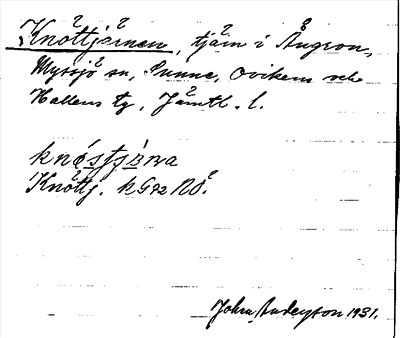 Knöttjärnen, tjärn i Ångron,
Myssjö sn, Sunne, Ovikens och
Hallens tg, Jämtl. l.
Knöttj. kG72 NO.
John Andersson 1931.